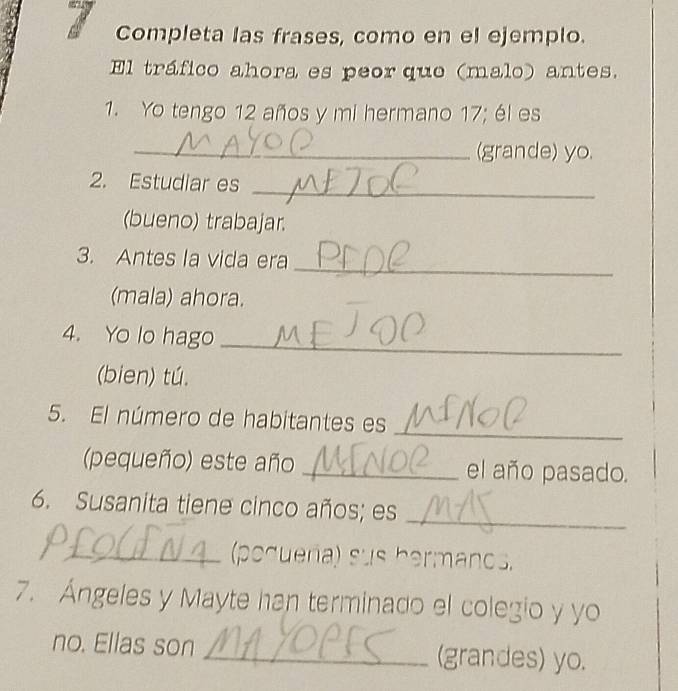 7 Completa las frases, como en el ejemplo.
El tráfico ahora es peor que (malo) antes.
1. Yo tengo 12 años y mi hermano 17; él es
MAYOR (grande) yo.
2. Estudiar es MEJOR
(bueno) trabajar.
3. Antes la vida era PEOR
(mala) ahora.
4. Yo lo hago MEJOR
(bien) tú.
5. El número de habitantes es MENOR
(pequeño) este año MENOR el año pasado.
6. Susanita tiene cinco años; es MAS
PEQUEÑA (pequeña) sus hermanos.
7. Ángeles y Mayte han terminado el colegio y yo
no. Ellas son MAYORES (grandes) yo.